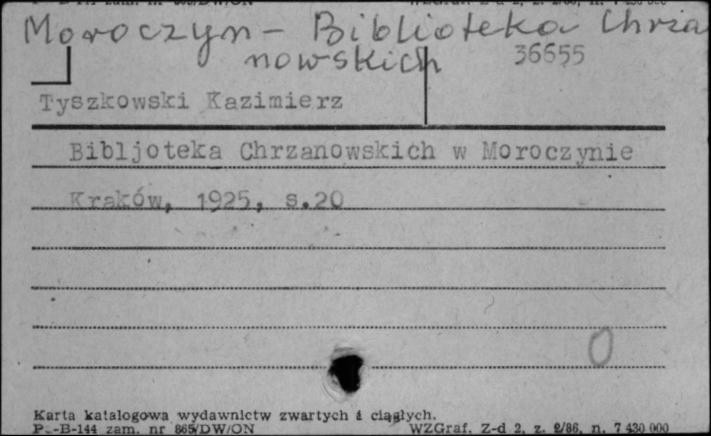 Moroczyn - Biblioteka Chrza
nowskich 36655
Tyszkowski Kazimierz
Bibljoteka Chrzanowskich w Moroczynie
Kraków, 1925, s.20
0
Karta katalogowa wydawnictw zwartych i ciągłych.
P.-B-144 zam. nr 865/DW/ON WZGraf. Z-d 2, z. 2/86, n. 7 430 000